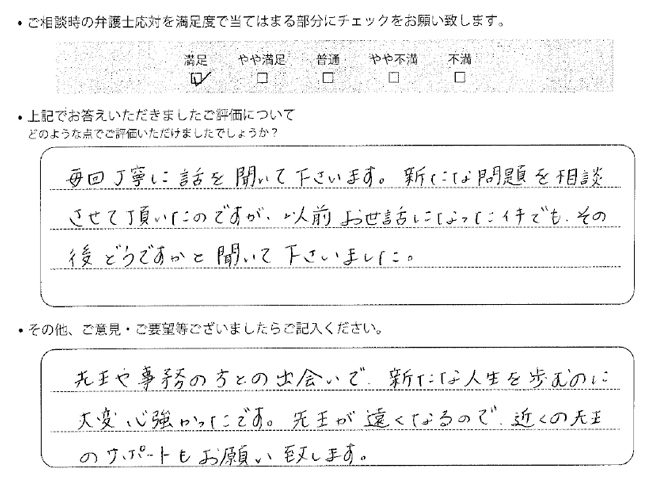 ・ご相談時の弁護士応対を満足度で当てはまる部分にチェックをお願い致します。
満足 やや満足 普通 やや不満 不満
・上記でお答えいただきましたご評価について
どのような点でご評価いただけましたでしょうか？
毎回丁寧に話を聞いて下さいます。新たな問題を相談
させて頂いたのですが、以前お世話になった件でも、その
後どうですかと聞いて下さいました。
・その他、ご意見・ご要望等ございましたらご記入ください。
先生や事務の方との出会いで、新たな人生を歩むのに
大変心強かったです。先生が遠くなるので、近くの先生
のサポートもお願い致します。